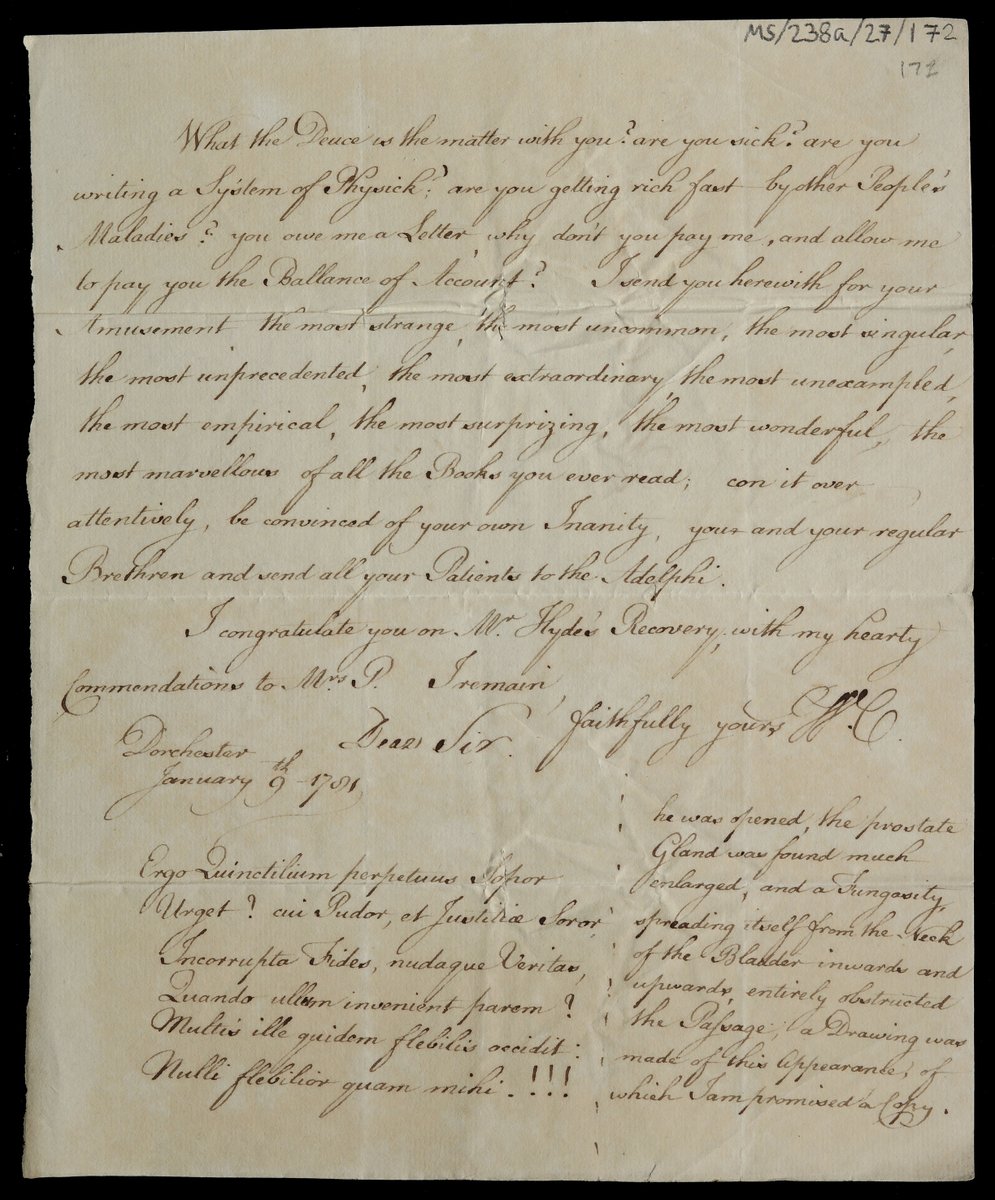 MS/238a/27/172
172
What the Deuce is the matter with you? are you sick? are you
writing a System of Physick? are you getting rich fast by other People's
Maladies? you owe me a Letter why don't you pay me, and allow me
to pay you the Ballance of Account? I send you herewith for your
Amusement the most strange, the most uncommon, the most singular,
the most unprecedented, the most extraordinary, the most unexampled,
the most empirical, the most surprizing, the most wonderful, the
most marvellous of all the Books you ever read; con it over
attentively, be convinced of your own Inanity, your and your regular
Brethren and send all your Patients to the Adelphi.
I congratulate you on Mr Hyde's Recovery, with my hearty
Commendations to Mrs P. I remain,
Dear Sir. faithfully yours Wm C.
Dorchester
January 9th - 1781,
Ergo Quinctilium perpetuus Sopor
Urget? cui Pudor, et Justitiæ Soror,
Incorrupta Fides, nudaque Veritas,
Quando ullum invenient parem?
Multis ille quidem flebilis occidit:
Nulli flebilior quam mihi.!!!
he was opened, the prostate
Gland was found much
enlarged, and a Fungosity,
spreading itself from the Neck
of the Bladder inwards and
upwards, entirely obstructed
the Passage; a Drawing was
made of this Appearance, of
which I am promised a Copy.